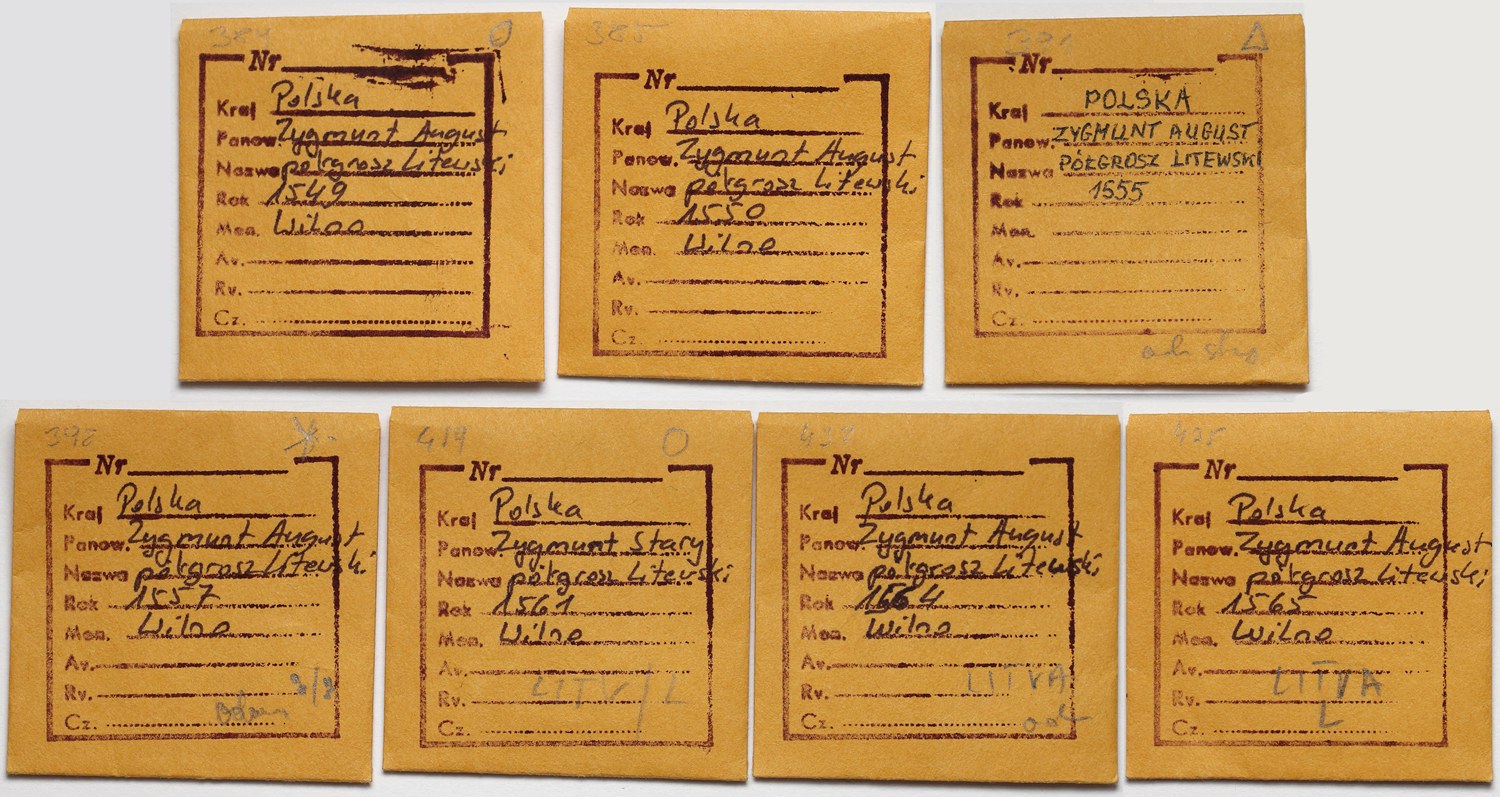 384 O
Nr
Kraj Polska
Panow. Zygmunt August
Nazwa półgrosz Litewski
Rok 1549
Men. Wilno
Av.
Rv.
Cz.
385
Nr
Kraj Polska
Panow. Zygmunt August
Nazwa półgrosz Litewski
Rok 1550
Men. Wilno
Av.
Rv.
Cz.
391 Δ
Nr
Kraj POLSKA
Panow. ZYGMUNT AUGUST
Nazwa PÓŁGROSZ LITEWSKI
Rok 1555
Men.
Av.
Rv.
Cz.
398
Nr
Kraj Polska
Panow. Zygmunt August
Nazwa półgrosz Litewski
Rok 1557
Men. Wilno
Av.
Rv.
Cz.
419 O
Nr
Kraj Polska
Panow. Zygmunt Stary
Nazwa półgrosz Litewski
Rok 1561
Men. Wilno
Av.
Rv. LITV/L
Cz.
Nr
Kraj Polska
Panow. Zygmunt August
Nazwa półgrosz Litewski
Rok 1564
Men. Wilno
Av.
Rv. LITVA
Cz.
Nr
Kraj Polska
Panow. Zygmunt August
Nazwa półgrosz Litewski
Rok 1565
Men. Wilno
Av.
Rv. LITVA
Cz. L